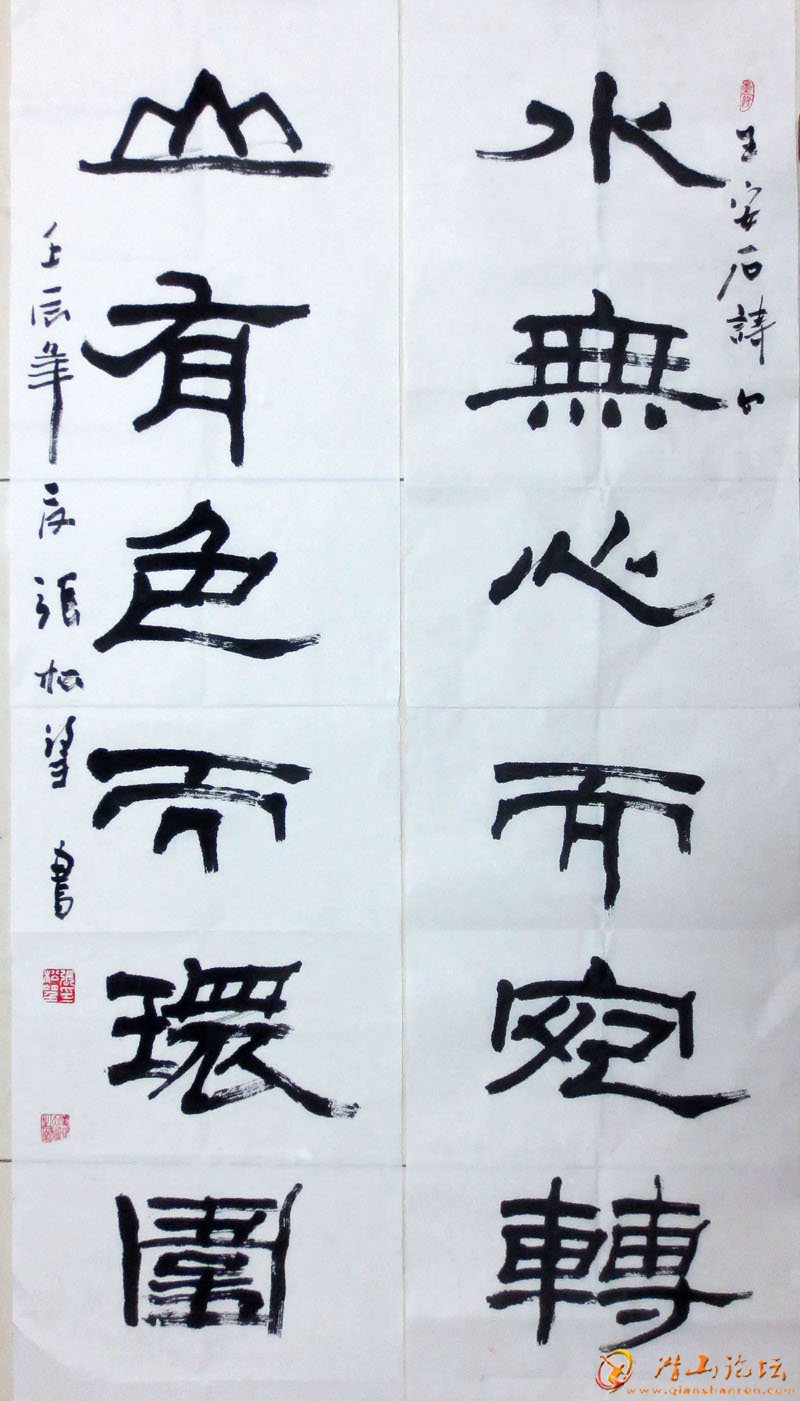 王安石詩句
水無心而宛轉
山有色而環圍
壬辰年夏張松望書
潜山论坛
www.qianshanren.com